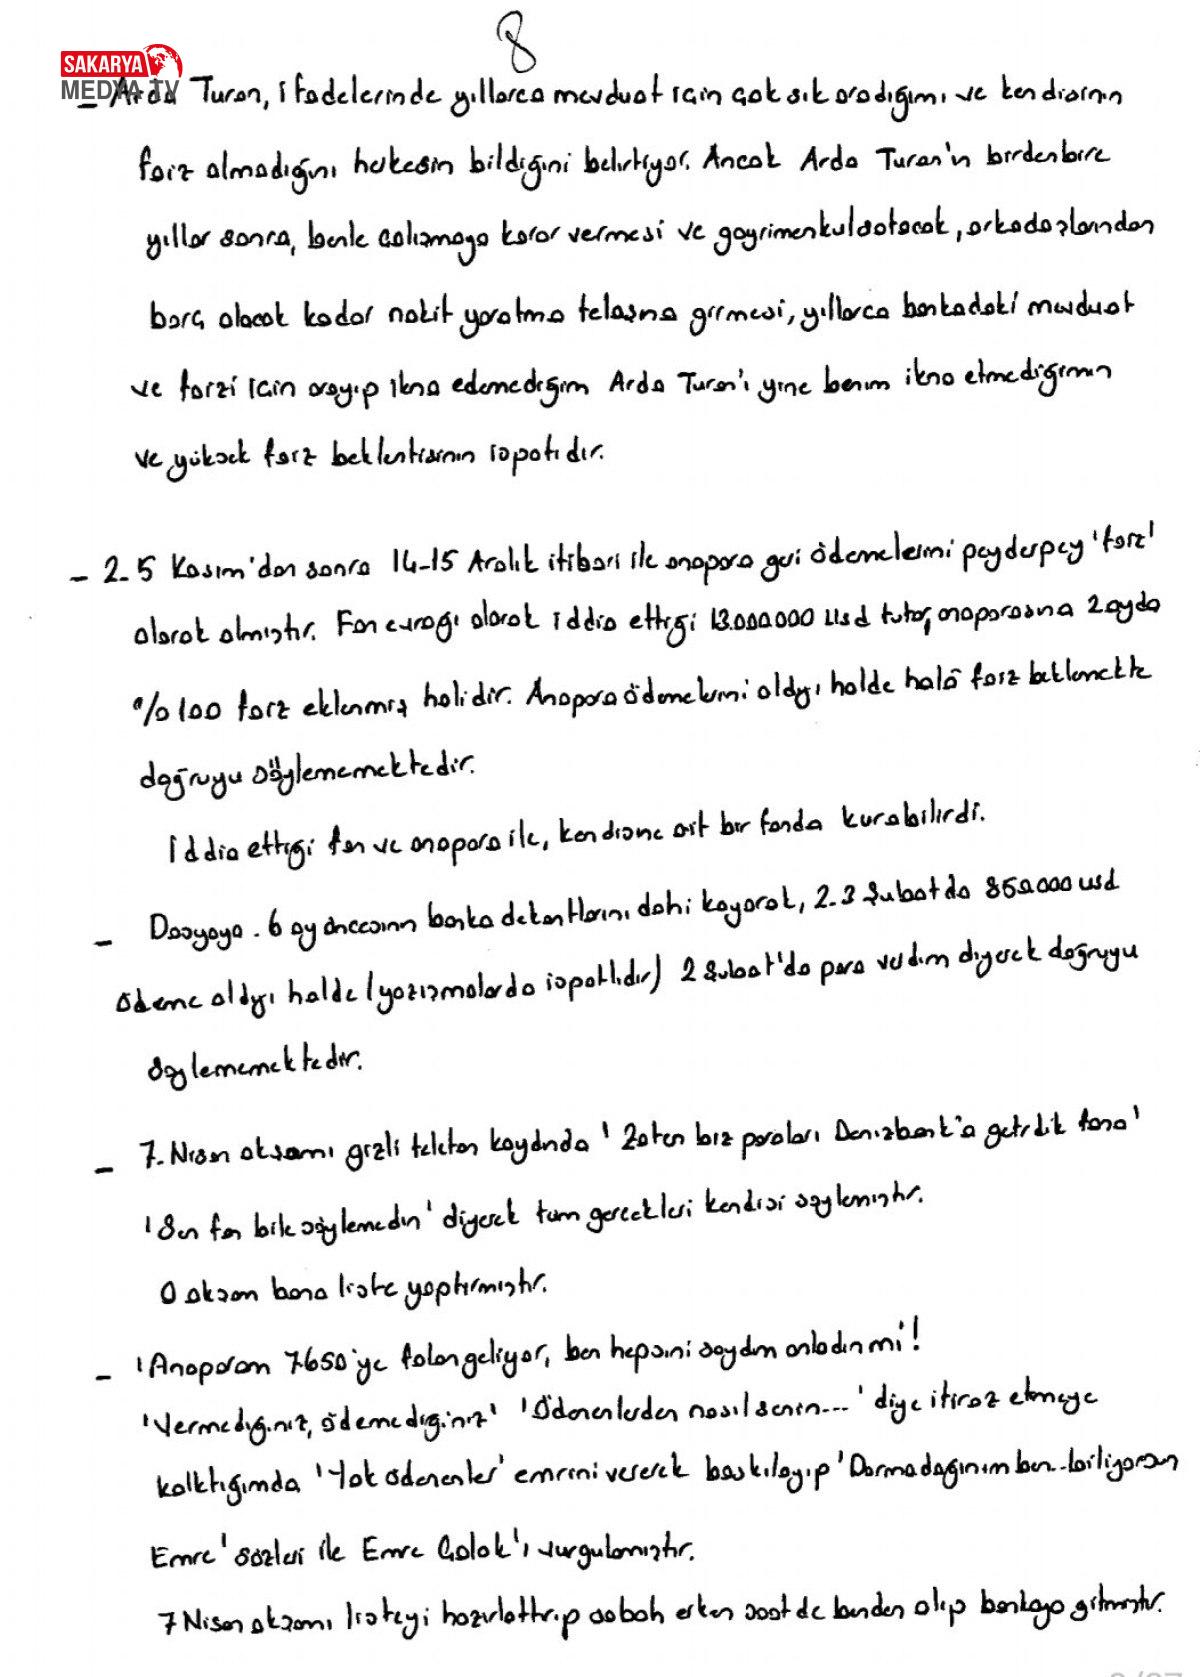 8
SAKARYA
MEDYA TV
- Arda Turan, ifadelerinde yıllarca mevduat için çok sık aradığımı ve kendisinin
faiz almadığını herkesin bildiğini belirtiyor. Ancak Arda Turan'ın birdenbire
yıllar sonra, benle çalışmaya karar vermesi ve gayrimenkul satacak, arkadaşlarından
borç alacak kadar nakit yaratma telaşına girmesi, yıllarca bankadaki mevduat
ve faizi için arayıp ikna edemediğim Arda Turan'ı yine benim ikna etmediğimin
ve yüksek faiz beklentisinin ispatıdır.
- 2.5 Kasım'dan sonra 14-15 Aralık itibari ile anapara geri ödemelerini peyderpey 'faiz'
olarak almıştır. Fon evrağı olarak iddia ettiği 13.000.000 Usd tutar, anaparasına 2 ayda
%100 faiz eklenmiş halidir. Anapara ödemelerini aldığı halde halâ faiz beklemekte
doğruyu söylememektedir.
İddia ettiği fon ve anapara ile, kendisine ait bir fonda kurabilirdi.
- Dosyaya . 6 ay öncesinin banka dekontlarını dahi koyarak, 2.3 Şubatda 850.000 usd
ödeme aldığı halde (yazışmalarda ispatlıdır) 2 Şubat'da para verdim diyerek doğruyu
söylememektedir.
- 7. Nisan akşamı gizli telefon kaydında 'Zaten biz paraları Denizbank'a getirdik fona'
'Sen fon bile söylemedin' diyerek tüm gerçekleri kendisi söylemiştir.
O akşam bana liste yaptırmıştır.
- 'Anaparam 7.650'ye falan geliyor, ben hepsini saydım anladın mı'!
'Vermediğiniz, ödemediğiniz' 'Ödenenlerden nasıl senin...' diye itiraz etmeye
kalktığımda 'Yok ödenenler' emrini vererek baskılayıp 'Darmadağınım ben...biliyorsun
Emre' sözleri ile Emre Çolak'ı vurgulamıştır.
7 Nisan akşamı listeyi hazırlattırıp sabah erken saatde benden alıp bankaya gitmiştir.